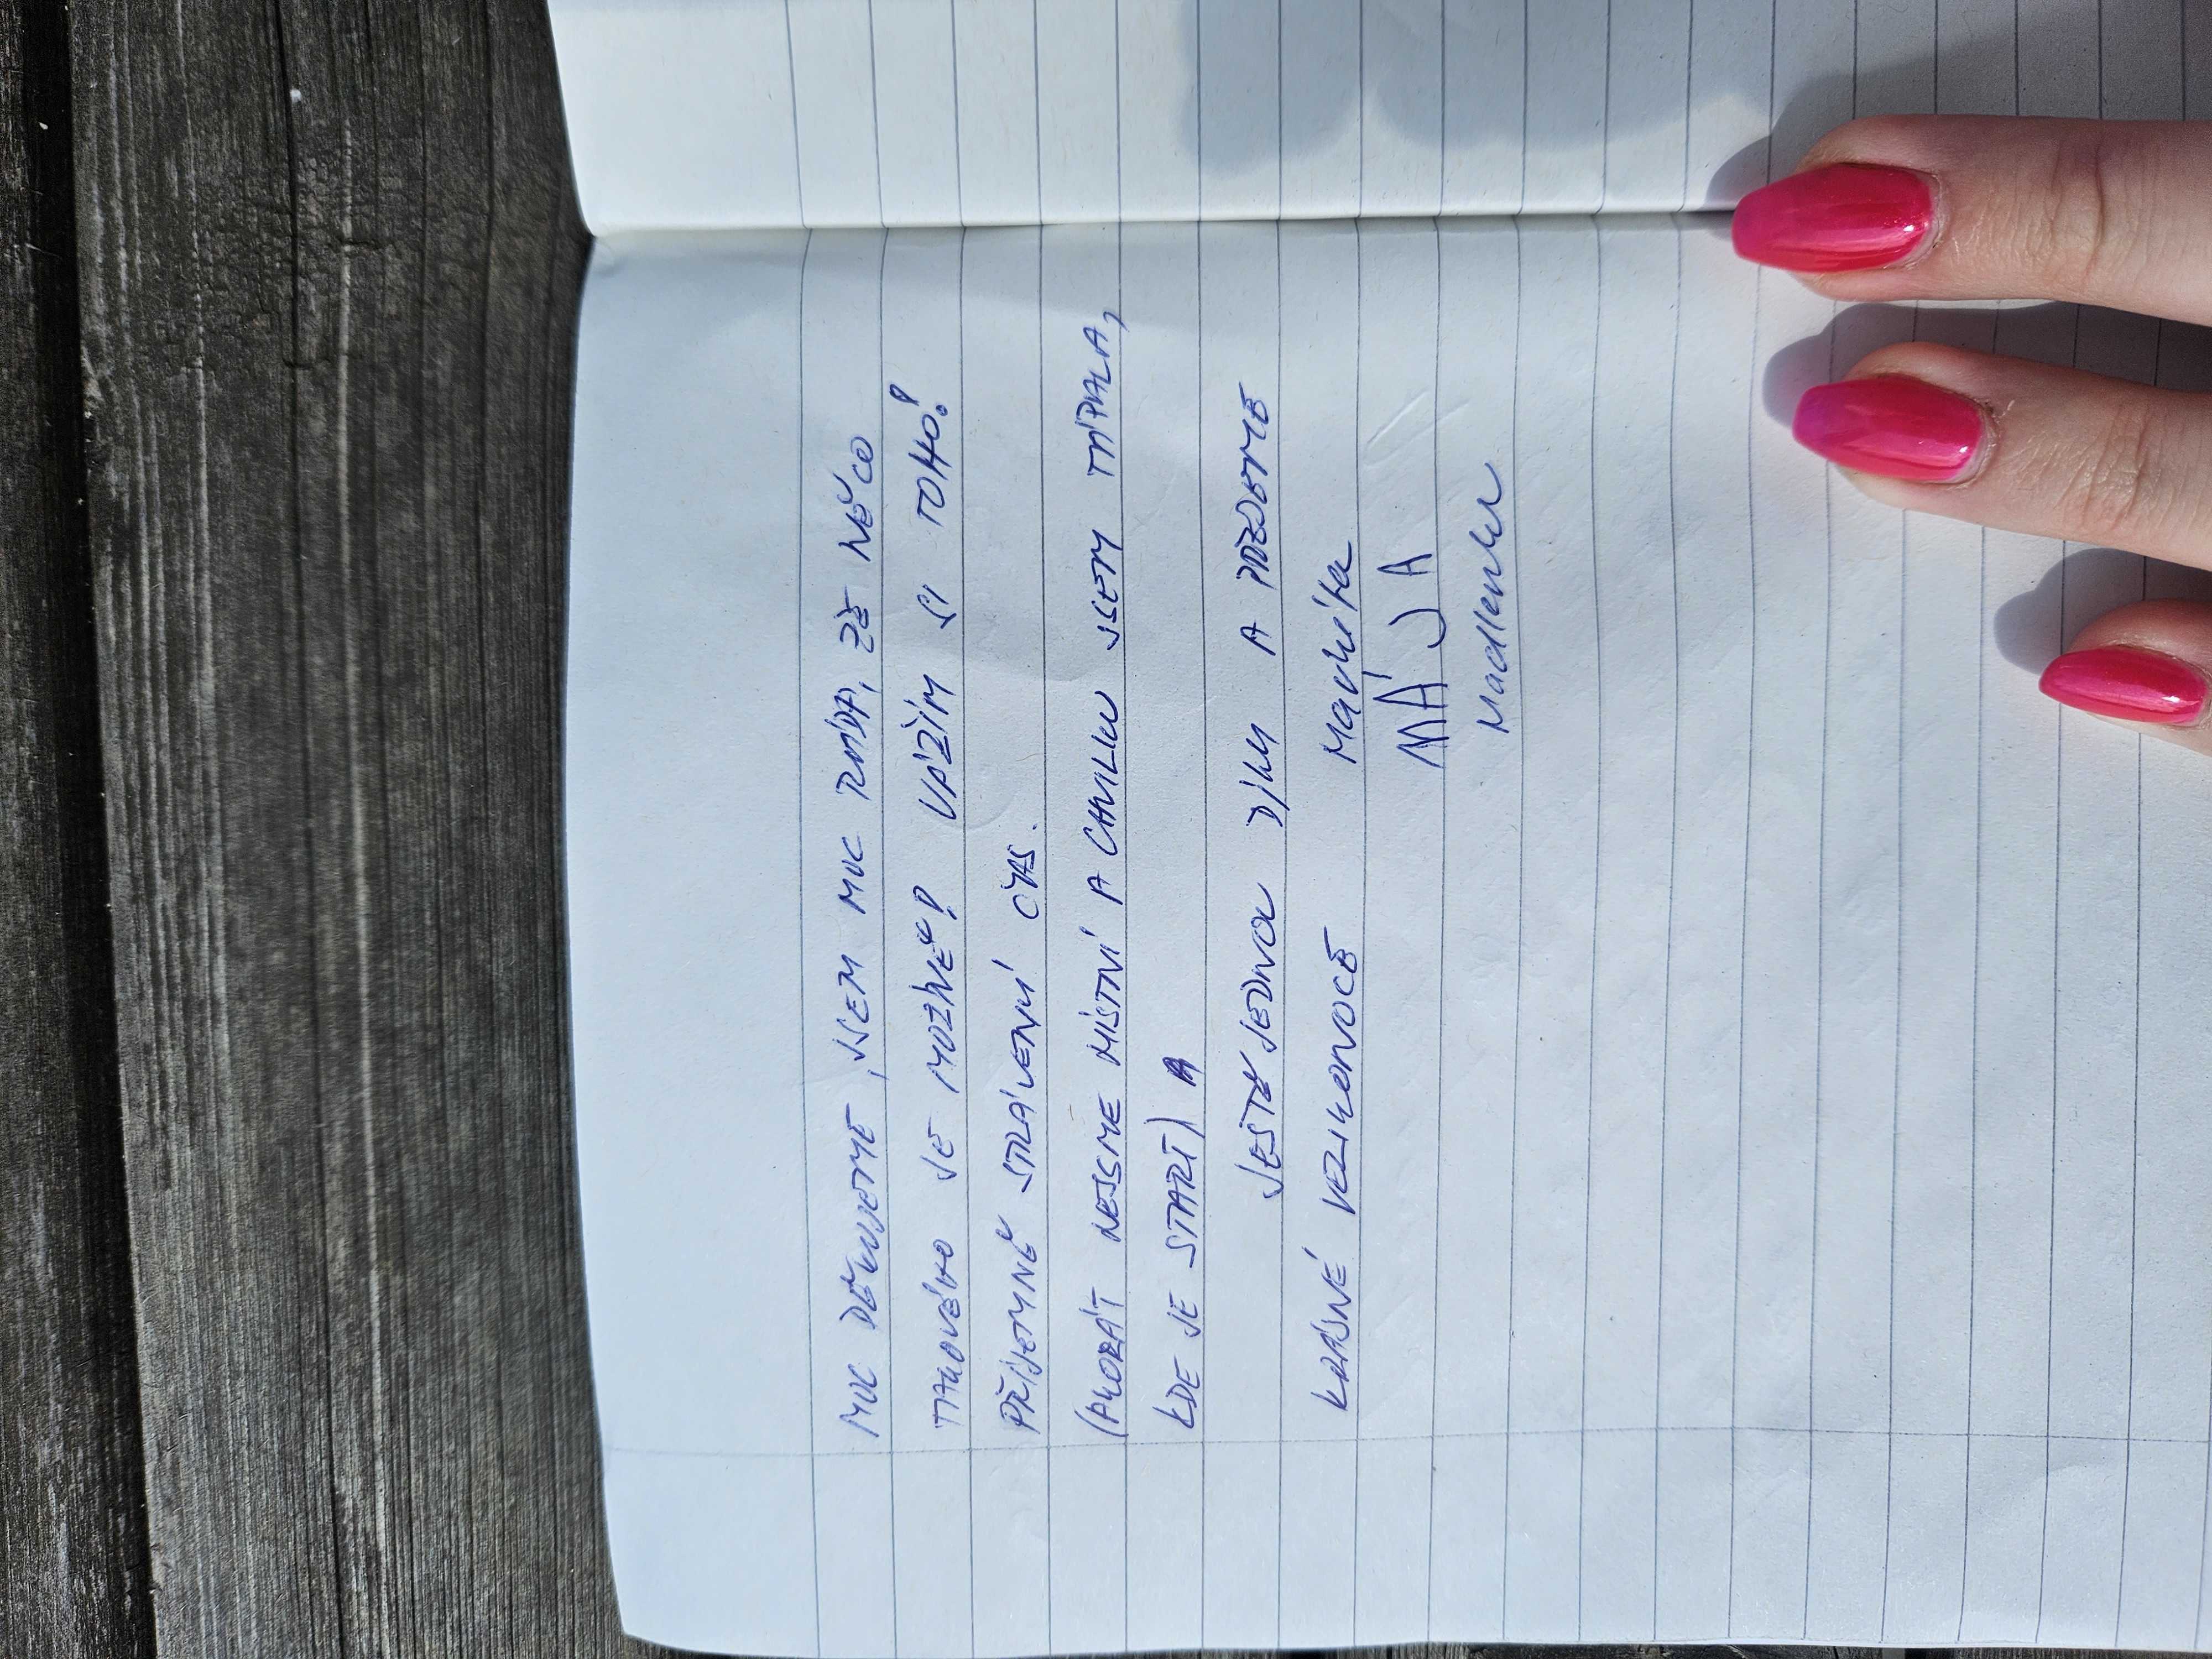 MOC DĚKUJEME, JSEM MOC RÁDA, ŽE NĚCO
TAKOVÉHO JE MOŽNÉ! VÁŽÍM SI TOHO!
PŘÍJEMNĚ STRÁVENÝ ČAS.
(AKORÁT NEJSME MÍSTNÍ A CHVILKU JSEM TÁPALA,
KDE JE START) A
JEŠTĚ JEDNOU DÍKY A
KRÁSNÉ VELIKONOCE
Markétka
MÁJA
Madlenka